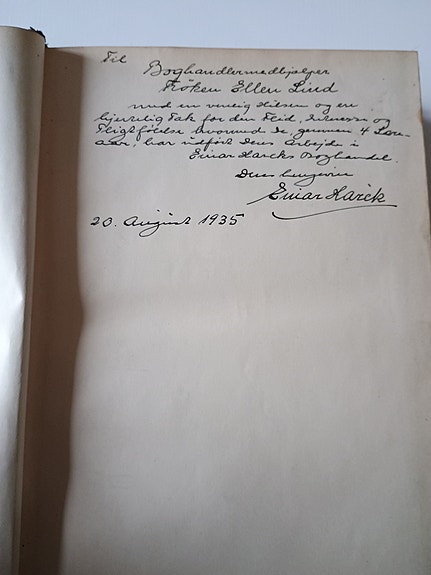 Til
Boghandlermedhjælper
Frøken Ellen Lind
med en venlig Hilsen og en
hjertelig Tak for den Flid, Interesse og
Pligtfølelse hvormed De, gennem 4 Lære-
aar, har udført Deres Arbejde i
Einar Harcks Boghandel.
Deres hengivne
Einar Harck
20. August 1935